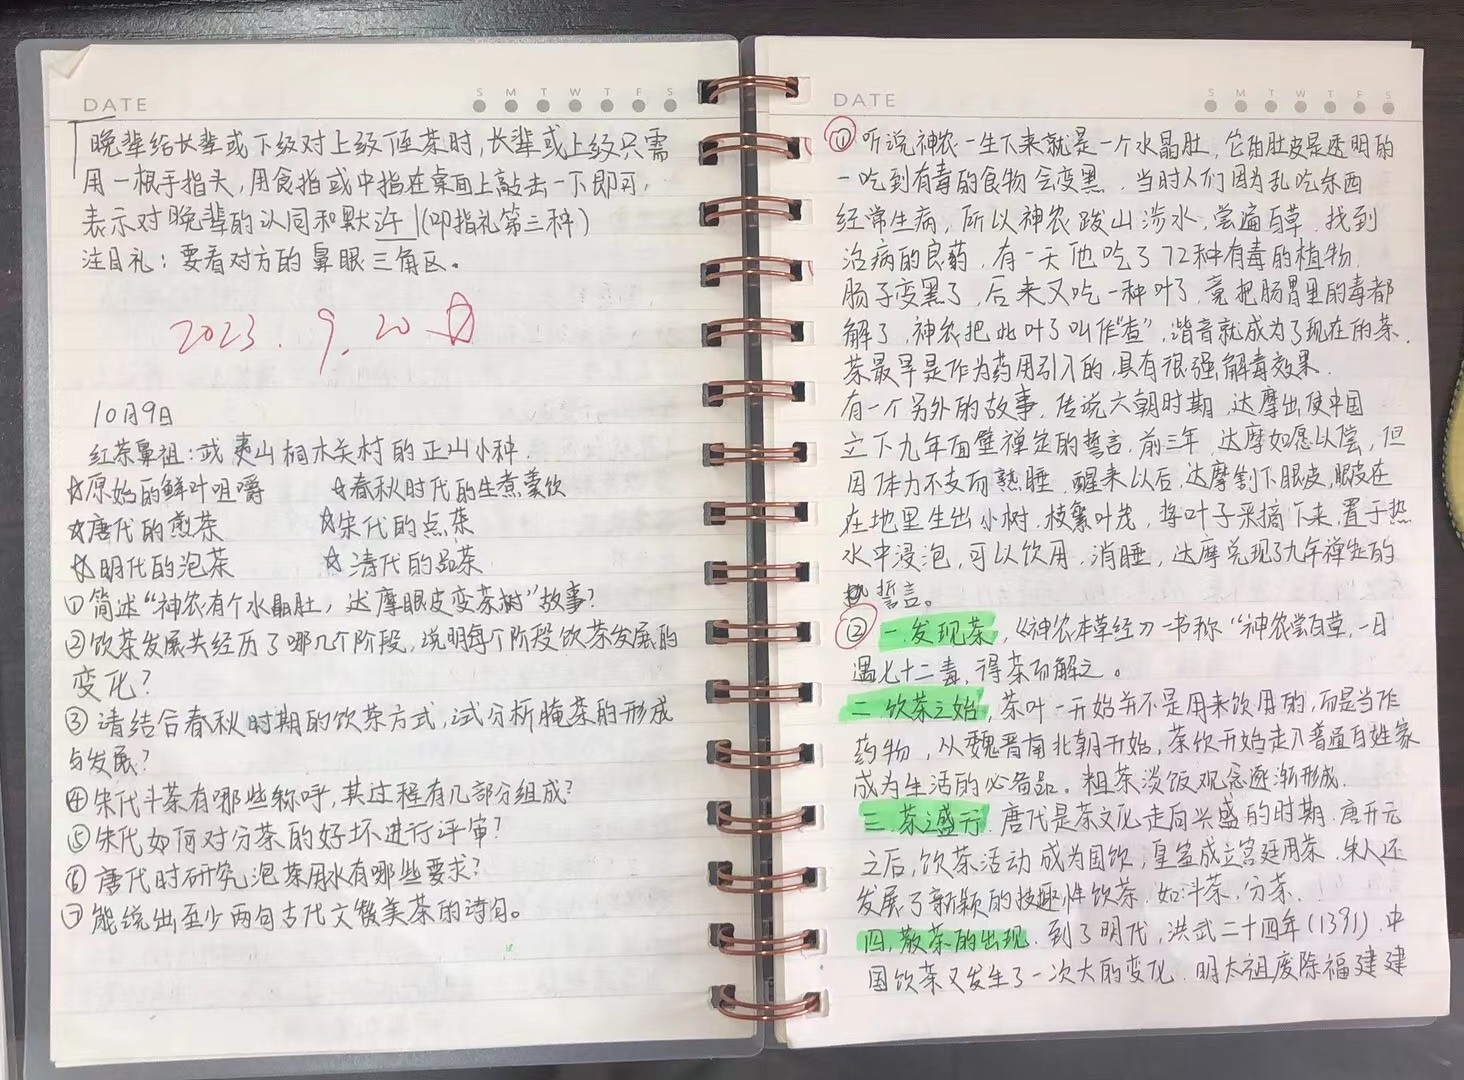 DATE
S M T W T F S
晚辈给长辈或下级对上级倒茶时,长辈或上级只需
用一根手指头,用食指或中指在桌面上敲击一下即可,
表示对晚辈的认同和默许(叩指礼第三种)
注目礼:要看对方的鼻眼三角区。
2023.9.20
10月9日
红茶鼻祖:武夷山桐木关村的正山小种.
☆原始的鲜叶咀嚼 ☆春秋时代的生煮羹饮
☆唐代的煎茶 ☆宋代的点茶
☆明代的泡茶 ☆清代的品茶
①简述“神农有个水晶肚,达摩眼皮变茶树”故事?
②饮茶发展共经历了哪几个阶段,说明每个阶段饮茶发展的
变化?
③请结合春秋时期的饮茶方式,试分析腌茶的形成
与发展?
④宋代斗茶有哪些称呼,其过程有几部分组成?
⑤宋代如何对分茶的好坏进行评审?
⑥唐代时研究泡茶用水有哪些要求?
⑦能说出至少两句古代文人赞美茶的诗句。
DATE
S M T W T F S
①听说神农一生下来就是一个水晶肚,它的肚皮是透明的
一吃到有毒的食物会变黑.当时人们因为乱吃东西
经常生病,所以神农跋山涉水,尝遍百草.找到
治病的良药.有一天他吃了72种有毒的植物.
肠子变黑了,后来又吃一种叶子,竟把肠胃里的毒都
解了.神农把此叶子叫作“查”,谐音就成为了现在的茶.
茶最早是作为药用引入的,具有很强解毒效果.
有一个另外的故事.传说六朝时期.达摩出使中国
立下九年面壁禅定的誓言.前三年.达摩如愿以偿,但
因体力不支而熟睡.醒来以后,达摩割下眼皮,眼皮在
在地里生出小树.枝繁叶茂,将叶子采摘下来,置于热
水中浸泡,可以饮用,消睡,达摩兑现了九年禅定的
誓言。
②一.发现茶,《神农本草经》一书称“神农尝百草,一日
遇七十二毒,得茶而解之。
二.饮茶之始,茶叶一开始并不是用来饮用的,而是当作
药物,从魏晋南北朝开始,茶饮开始走入普通百姓家
成为生活的必备品。粗茶淡饭观念逐渐形成.
三.茶之盛行.唐代是茶文化走向兴盛的时期.唐开元
之后,饮茶活动成为国饮,皇室成立宫廷用茶.宋人还
发展了新颖的技趣性饮茶.如斗茶,分茶.
四,散茶的出现.到了明代,洪武二十四年(1391).中
国饮茶又发生了一次大的变化.明太祖废除福建建